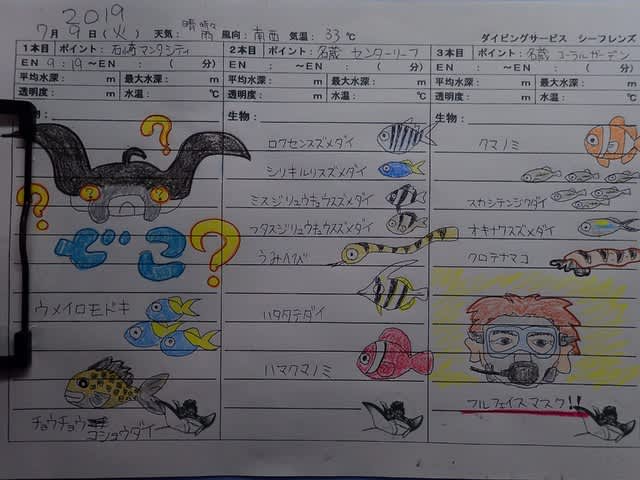 2019
7月9日(火) 天気: 晴時々雨 風向: 南西 気温: 33℃
ダイビングサービス シーフレンズ
1本目 ポイント: 石崎マンタシティ
EN 9:19~EN : ( 分)
平均水深: m 最大水深: m
透明度: m 水温: ℃
物:
?
?
どこ?
ウメイロモドキ
チョウチョウ
コショウダイ
2本目 ポイント: 名蔵 センターリーフ
EN : ~EN : ( 分)
平均水深: m 最大水深: m
透明度: m 水温: ℃
生物:
ロクセンスズメダイ
シリキルリスズメダイ
ミスジリュウキュウスズメダイ
フタスジリュウキュウスズメダイ
うみへび
ハタタテダイ
ハマクマノミ
3本目 ポイント: 名蔵 コーラルガーデン
EN : ~EN : ( 分)
平均水深: m 最大水深: m
透明度: m 水温: ℃
生物:
クマノミ
スカシテンジクダイ
オキナワスズメダイ
クロテナマコ
フルフェイスマスク!!